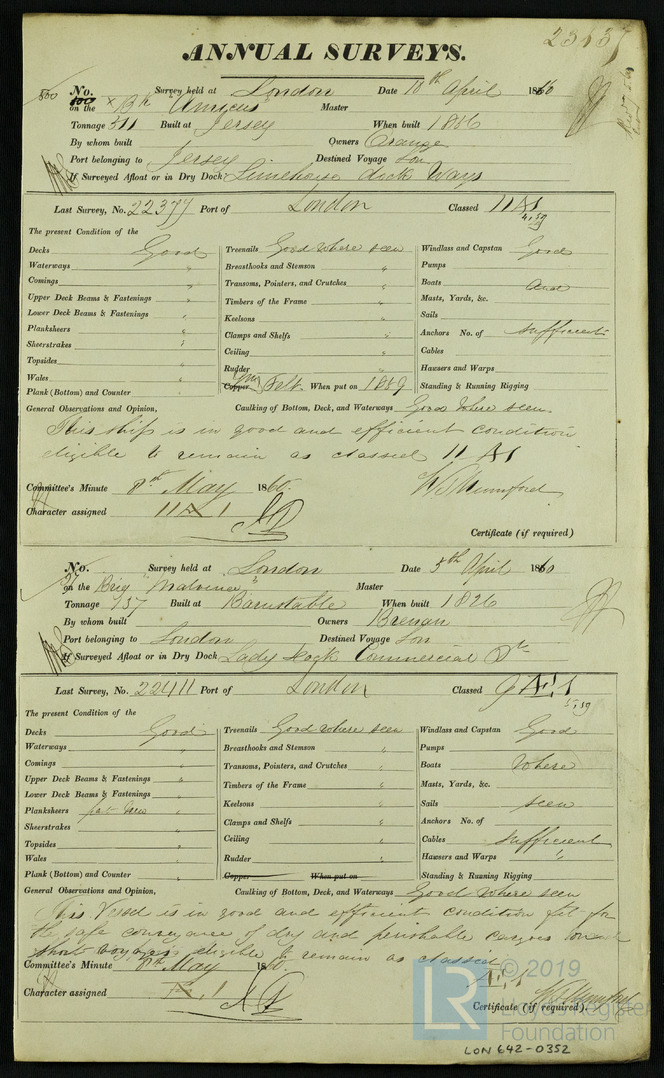 ANNUAL SURVEYS.
No. Survey held at London Date 10th April 1860
on the Bk "Amycus" Master
Tonnage 311 Built at Jersey When built 1856
By whom built Owners Orange
Port belonging to Jersey Destined Voyage Lon
If Surveyed Afloat or in Dry Dock Limehouse dock Ways
Last Survey, No. 22377 Port of London Classed 11 A1
4,59
The present Condition of the
Decks Good Treenails Good where seen Windlass and Capstan Good
Waterways " Breasthooks and Stemson " Pumps
Comings " Transoms, Pointers, and Crutches " Boats and
Upper Deck Beams & Fastenings " Timbers of the Frame " Masts, Yards, &c.
Lower Deck Beams & Fastenings " Keelsons " Sails
Planksheers " Clamps and Shelfs " Anchors No. of sufficient
Sheerstrakes " Ceiling " Cables
Topsides " Rudder " Hawsers and Warps
Wales " Copper Felt When put on 1859 Standing & Running Rigging
Plank (Bottom) and Counter "
General Observations and Opinion, Caulking of Bottom, Deck, and Waterways Good where seen.
This ship is in good and efficient condition
eligible to remain as classed 11 A1
Committee's Minute 8th May 1860.
Character assigned 11 A 1
Certificate (if required)
No. Survey held at London Date 5th April 1860
on the Brig "Malvina" Master
Tonnage 137 Built at Barnstable When built 1826
By whom built Owners Brenan
Port belonging to London Destined Voyage Lon
If Surveyed Afloat or in Dry Dock Lady Dock Commercial
Last Survey, No. 22411 Port of London Classed Æ 1
5,59
The present Condition of the
Decks Good Treenails Good where seen Windlass and Capstan Good
Waterways " Breasthooks and Stemson " Pumps
Comings " Transoms, Pointers, and Crutches " Boats Where
Upper Deck Beams & Fastenings " Timbers of the Frame " Masts, Yards, &c.
Lower Deck Beams & Fastenings " Keelsons " Sails seen
Planksheers part New " Clamps and Shelfs " Anchors No. of
Sheerstrakes " Ceiling " Cables sufficient
Topsides " Rudder " Hawsers and Warps "
Wales " Copper When put on Standing & Running Rigging
Plank (Bottom) and Counter "
General Observations and Opinion, Caulking of Bottom, Deck, and Waterways Good where seen
This Vessel is in good and efficient condition fit for
the safe conveyance of dry and perishable cargoes on
short voyages eligible to remain as classed
Æ 1
Committee's Minute 8th May 1860.
Character assigned Æ 1
Certificate (if required).
© 2019
LR Lloyd's Register
Foundation
LON 642-0352